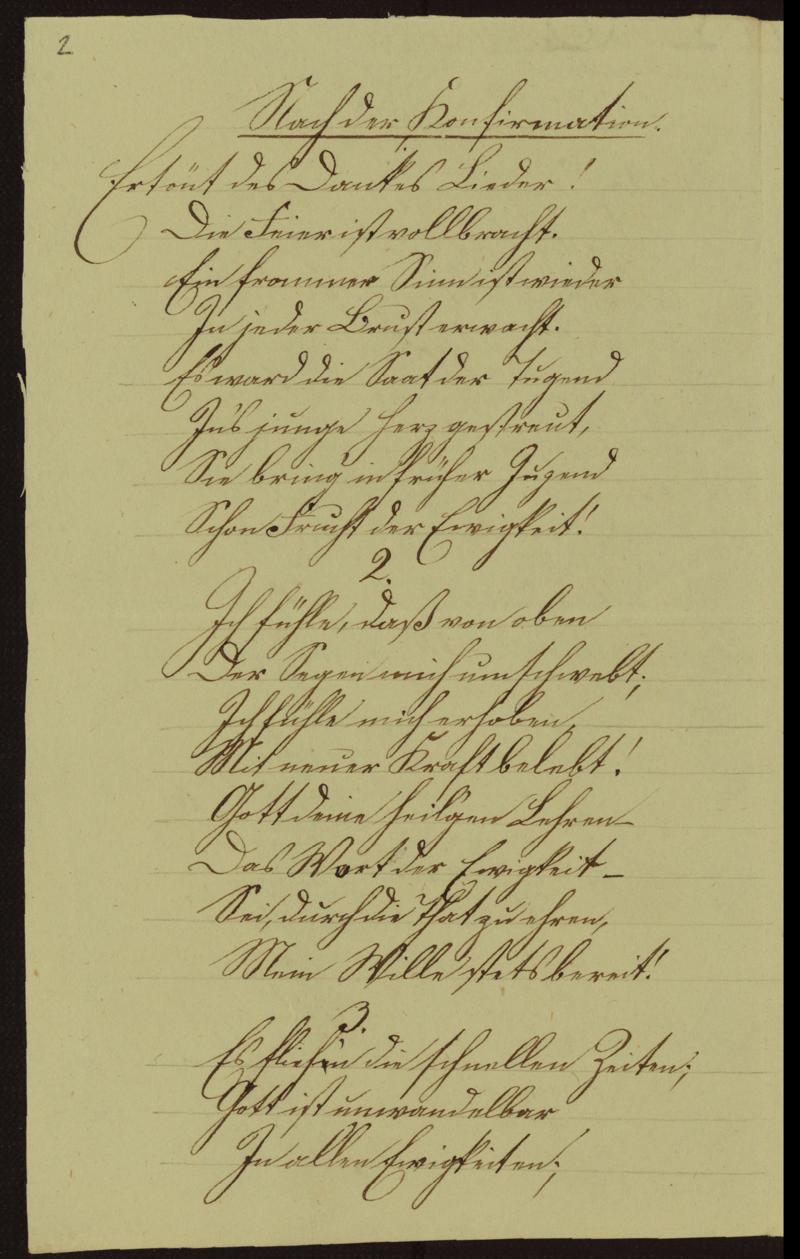 2
Nach der Konfirmation.
Ertönt des Dankes Lieder!
Die Feier ist vollbracht.
Ein frommer Sinn ist wieder
In jeder Brust erwacht.
Es ward die Saat der Tugend
In's junge Herz gestreut,
Sie bring' in früher Jugend
Schon Frucht der Ewigkeit!
2.
Ich fühle, daß von oben
Der Segen mich umschwebt;
Ich fühle mich erhoben,
Mit neuer Kraft belebt!
Gott deine heil'gen Lehren –
Das Wort der Ewigkeit –
Sei, durch die That zu ehren,
Mein Wille stets bereit!
3.
Es flieh'n die schnellen Zeiten;
Gott ist unwandelbar
In allen Ewigkeiten;